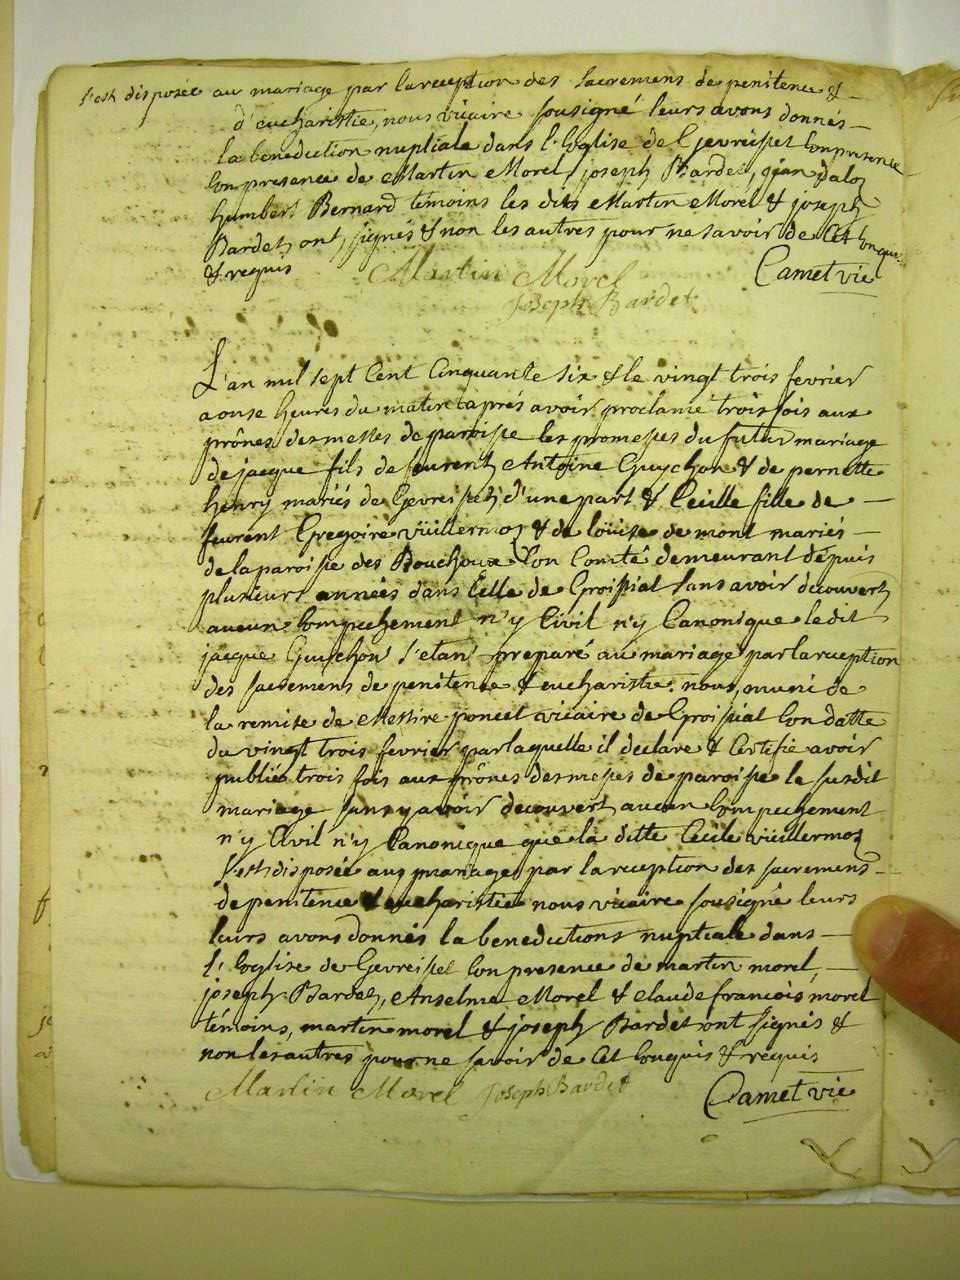 s'est disposée au mariage par la reception des sacremens de penitence &
d'eucharistie, nous vicaire sousigné leurs avons donnés
la benediction nuptiale dans l'Eglise de Gevreisset en presence
en presence de Martin Morel, joseph Bardet, jean Daloz
humbert Bernard témoins les dits Martin Morel & joseph
Bardet ont signés & non les autres pour ne savoir de cet enquis
& requis
Martin Morel Camet vic
Joseph Bardet
L'an mil sept cent cinquante six & le vingt trois fevrier
a onse heures du matin et aprés avoir proclamé trois fois aux
prônes des messes de paroisse les promesses du futur mariage
de jacque fils de feu renti Antoine Guychon & de pernette
henry mariés de Gevreisset d'une part & Cecille fille de
feurent Gregoire vüillermoz & de loüise de mont mariés
de la paroisse des Bouchoux en Comté demeurant depuis
plusieurs années dans Celle de Groissiat sans avoir decouvert
aucun empechement n'y Civil n'y Canonique le dit
jacque Guychon s'etant preparé au mariage par la reception
des sacremens de penitence & eucharistie, nous, muni de
la remise de Messire poncet vicaire de Groissiat en datte
du vingt trois fevrier par laquelle il declare & Certifie avoir
publié trois fois aux prônes des messes de paroisse le susdit
mariage sans y avoir decouvert aucun empechement
n'y Civil n'y Canonique que la ditte Cecile vüillermoz
s'est disposée au mariage par la reception des sacremens
de penitence & eucharistie nous vicaire sousigné leurs
leurs avons donnés la benediction nuptiale dans
l'Eglise de Gevreisset en presence de martin morel,
joseph Bardet, Anselme Morel & claude francois morel
témoins, martin morel & joseph Bardet ont signés &
non les autres pour ne savoir de cet enquis & requis
Martin Morel Joseph Bardet Camet vic